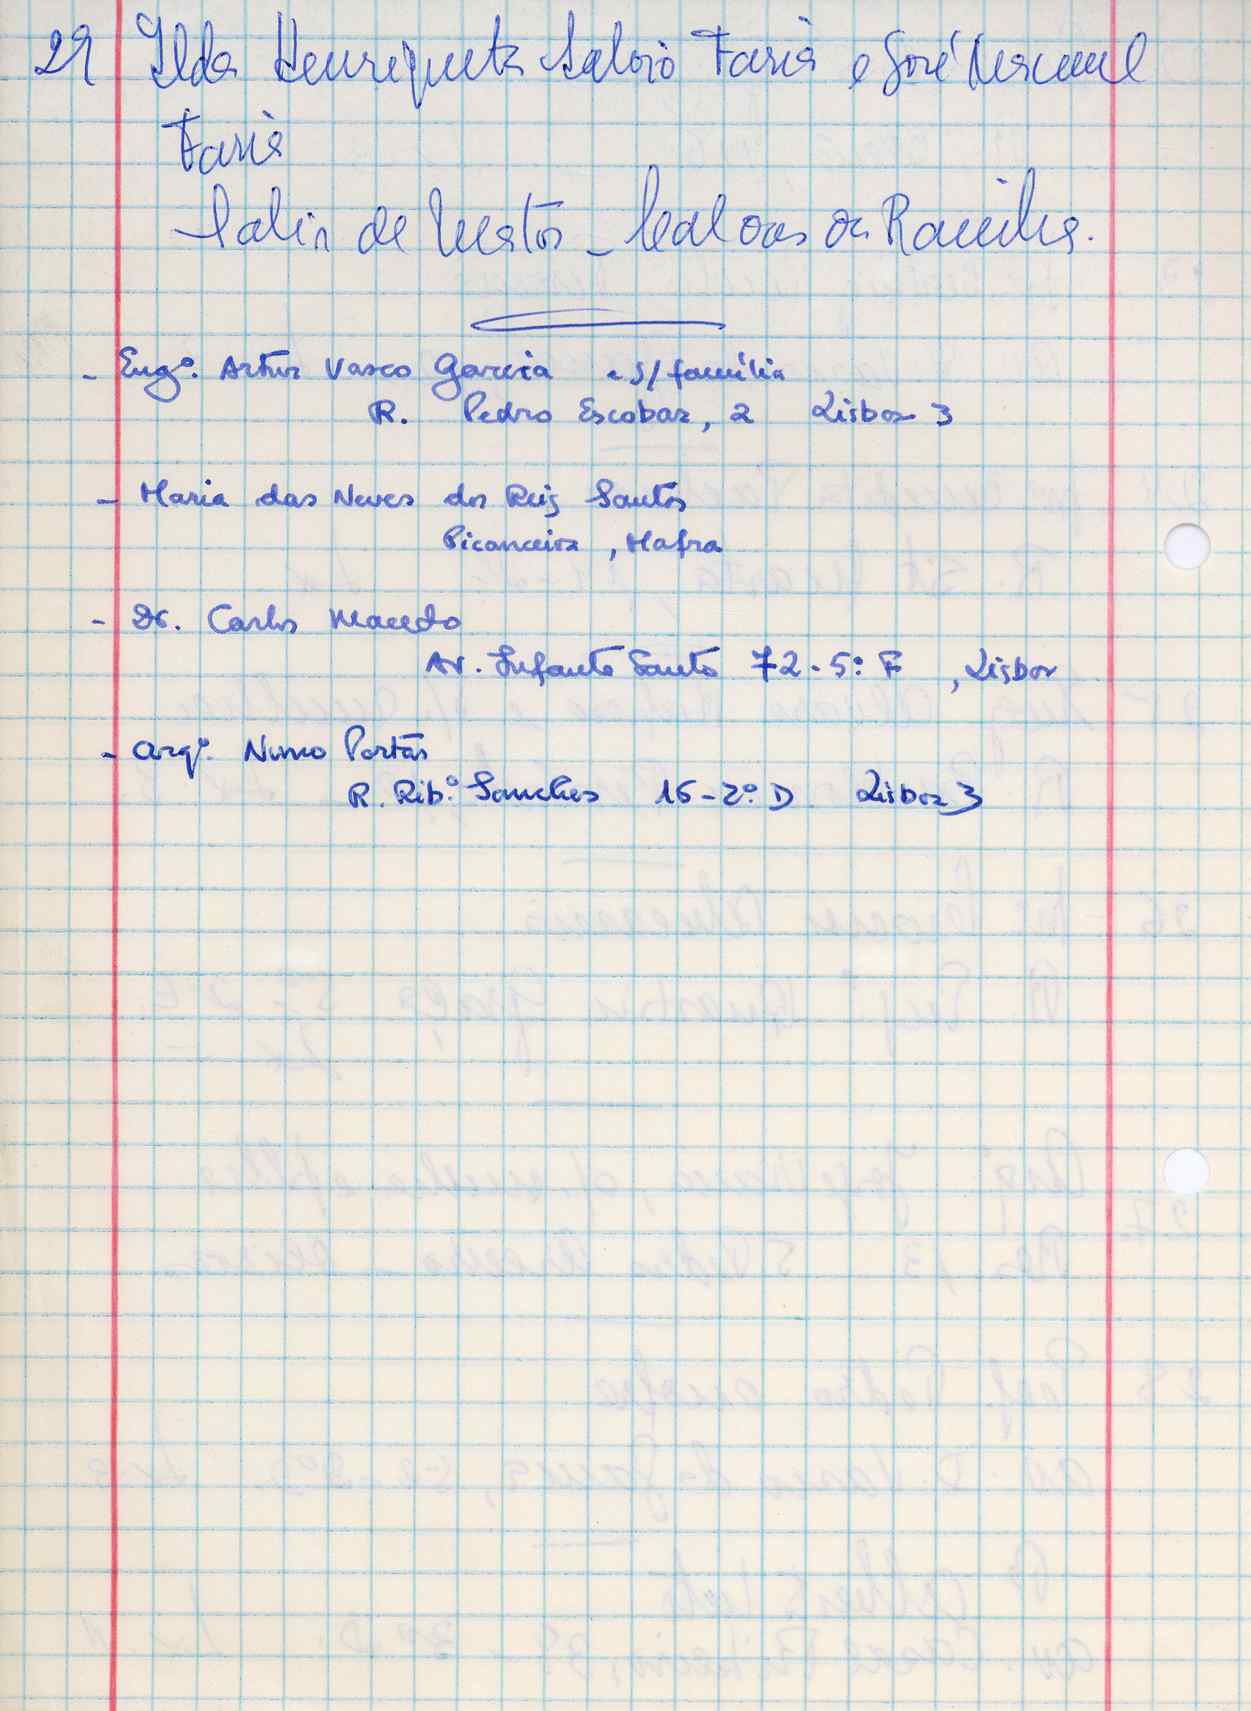 29 Ilda Henriqueta Saloio Faria e José Manuel
Faria
Salir de Matos - Caldas da Rainha.
- Engº. Artur Vasco Garcia e s/ família
R. Pedro Escobar, 2 Lisboa 3
- Maria das Neves dos Reis Santos
Picanceira, Mafra
- Dr. Carlos Macedo
Av. Infante Santo 72-5º F, Lisboa
- Arqº. Nuno Portas
R. Ribº. Sanches 16-2º. D Lisboa 3